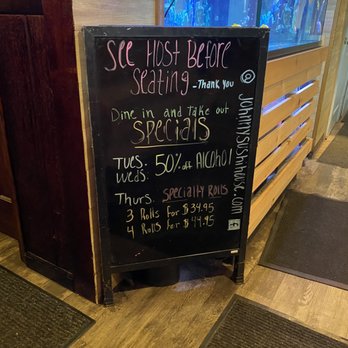 See Host Before
Seating -Thank You
Dine in and Take out
Specials
Tues. 50% off Alcohol
Weds.
Thurs. Specialty Rolls
3 Rolls for $34.95
4 Rolls for $44.95
@ Johnnyssushihouse.com